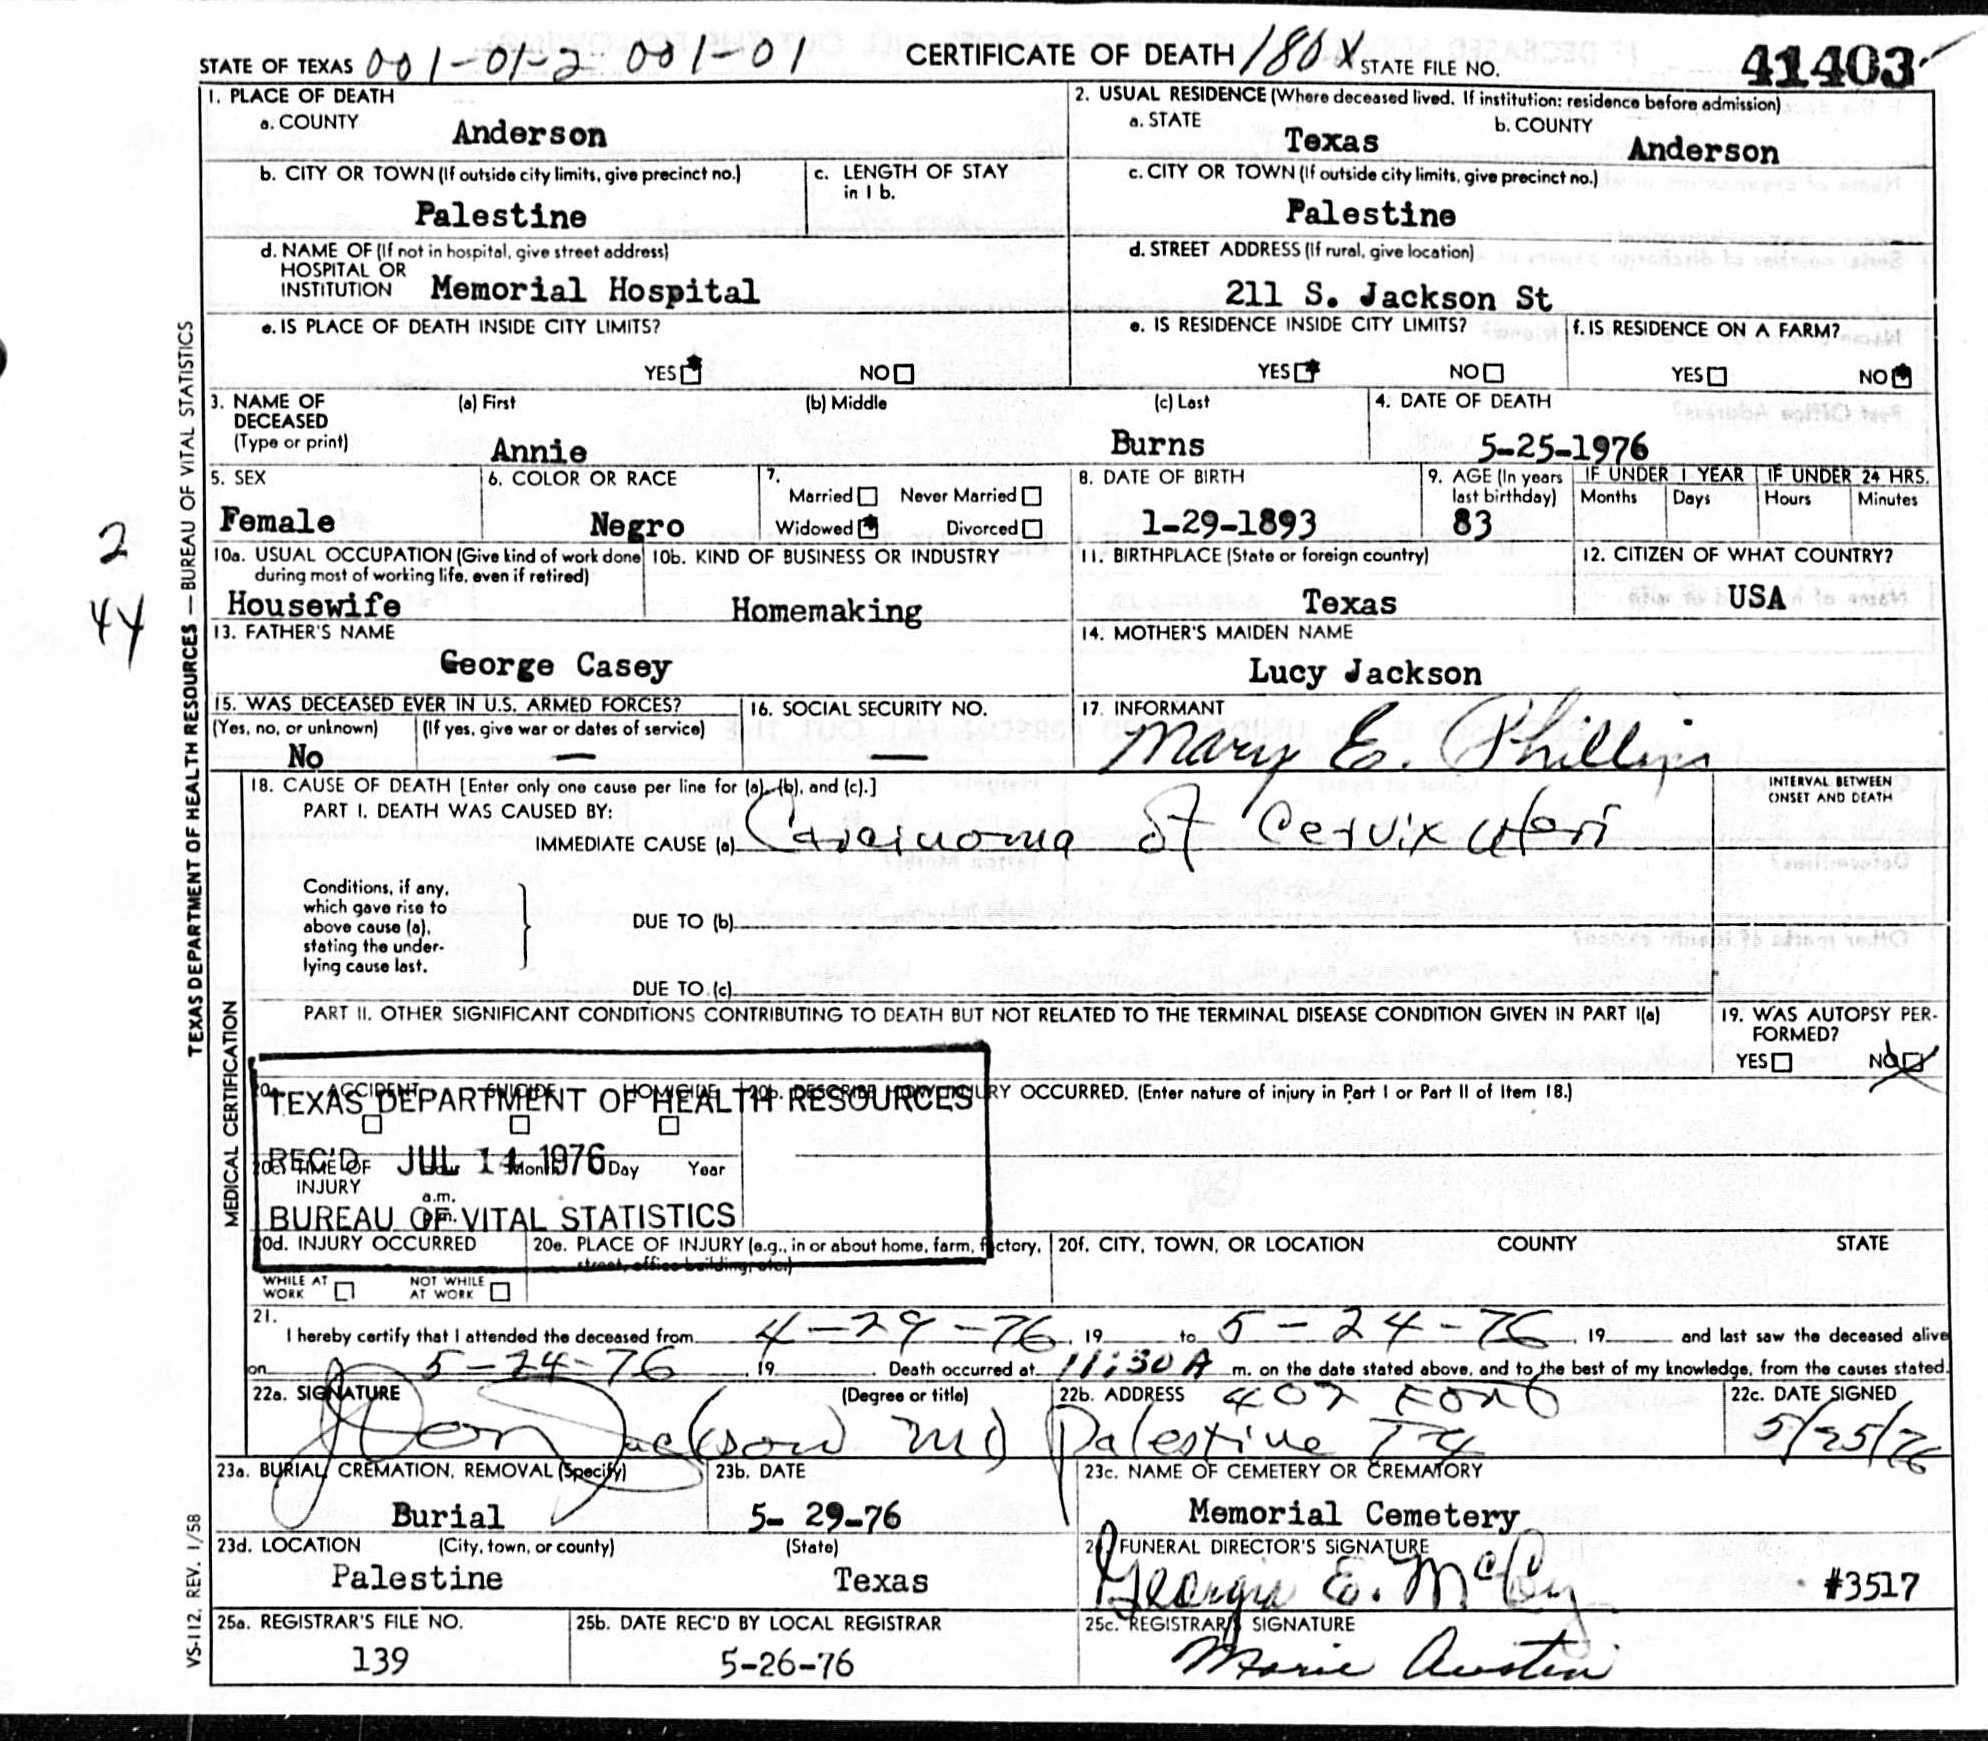 STATE OF TEXAS 001-01-2 001-01 CERTIFICATE OF DEATH 180X STATE FILE NO. 41403
1. PLACE OF DEATH
a. COUNTY
Anderson
2. USUAL RESIDENCE (Where deceased lived. If institution: residence before admission)
a. STATE
Texas
b. COUNTY
Anderson
b. CITY OR TOWN (If outside city limits, give precinct no.)
Palestine
c. LENGTH OF STAY
in 1 b.
c. CITY OR TOWN (If outside city limits, give precinct no.)
Palestine
d. NAME OF (If not in hospital, give street address)
HOSPITAL OR
INSTITUTION Memorial Hospital
d. STREET ADDRESS (If rural, give location)
211 S. Jackson St
e. IS PLACE OF DEATH INSIDE CITY LIMITS?
YES NO
e. IS RESIDENCE INSIDE CITY LIMITS?
YES NO
f. IS RESIDENCE ON A FARM?
YES NO
3. NAME OF
DECEASED
(Type or print)
(a) First (b) Middle (c) Last
Annie Burns
4. DATE OF DEATH
5-25-1976
5. SEX
Female
6. COLOR OR RACE
Negro
7.
Married Never Married
Widowed Divorced
8. DATE OF BIRTH
1-29-1893
9. AGE (In years
last birthday)
83
IF UNDER 1 YEAR
Months Days
IF UNDER 24 HRS.
Hours Minutes
10a. USUAL OCCUPATION (Give kind of work done
during most of working life, even if retired)
Housewife
10b. KIND OF BUSINESS OR INDUSTRY
Homemaking
11. BIRTHPLACE (State or foreign country)
Texas
12. CITIZEN OF WHAT COUNTRY?
USA
13. FATHER'S NAME
George Casey
14. MOTHER'S MAIDEN NAME
Lucy Jackson
15. WAS DECEASED EVER IN U.S. ARMED FORCES?
(Yes, no, or unknown) (If yes, give war or dates of service)
No —
16. SOCIAL SECURITY NO.
—
17. INFORMANT
Mary E. Phillips
18. CAUSE OF DEATH [Enter only one cause per line for (a), (b), and (c).]
PART I. DEATH WAS CAUSED BY:
IMMEDIATE CAUSE (a) Carcinoma of Cervix uteri
INTERVAL BETWEEN
ONSET AND DEATH
Conditions, if any,
which gave rise to
above cause (a),
stating the under-
lying cause last.
DUE TO (b)
DUE TO (c)
PART II. OTHER SIGNIFICANT CONDITIONS CONTRIBUTING TO DEATH BUT NOT RELATED TO THE TERMINAL DISEASE CONDITION GIVEN IN PART I(a)
19. WAS AUTOPSY PER-
FORMED?
YES NO
ACCIDENT SUICIDE HOMICIDE
20b. DESCRIBE HOW INJURY OCCURRED. (Enter nature of injury in Part I or Part II of Item 18.)
TEXAS DEPARTMENT OF HEALTH RESOURCES
REC'D JUL 14 1976
BUREAU OF VITAL STATISTICS
TIME OF
INJURY
Month Day Year
a.m.
p.m.
20d. INJURY OCCURRED
WHILE AT
WORK
NOT WHILE
AT WORK
20e. PLACE OF INJURY (e.g., in or about home, farm, factory,
street, office building, etc.)
20f. CITY, TOWN, OR LOCATION COUNTY STATE
21.
I hereby certify that I attended the deceased from 4-29-76, 19 to 5-24-76, 19 and last saw the deceased alive
on 5-24-76, 19. Death occurred at 11:30 A m. on the date stated above, and to the best of my knowledge, from the causes stated.
22a. SIGNATURE (Degree or title)
Jackson MD
22b. ADDRESS
Palestine
22c. DATE SIGNED
5/25/76
23a. BURIAL, CREMATION, REMOVAL (Specify)
Burial
23b. DATE
5- 29-76
23c. NAME OF CEMETERY OR CREMATORY
Memorial Cemetery
23d. LOCATION (City, town, or county) (State)
Palestine Texas
24. FUNERAL DIRECTOR'S SIGNATURE
George E. McCoy #3517
25a. REGISTRAR'S FILE NO.
139
25b. DATE REC'D BY LOCAL REGISTRAR
5-26-76
25c. REGISTRAR'S SIGNATURE
Marie Austin
TEXAS DEPARTMENT OF HEALTH RESOURCES — BUREAU OF VITAL STATISTICS
MEDICAL CERTIFICATION
VS-112, REV. 1/58
2
44